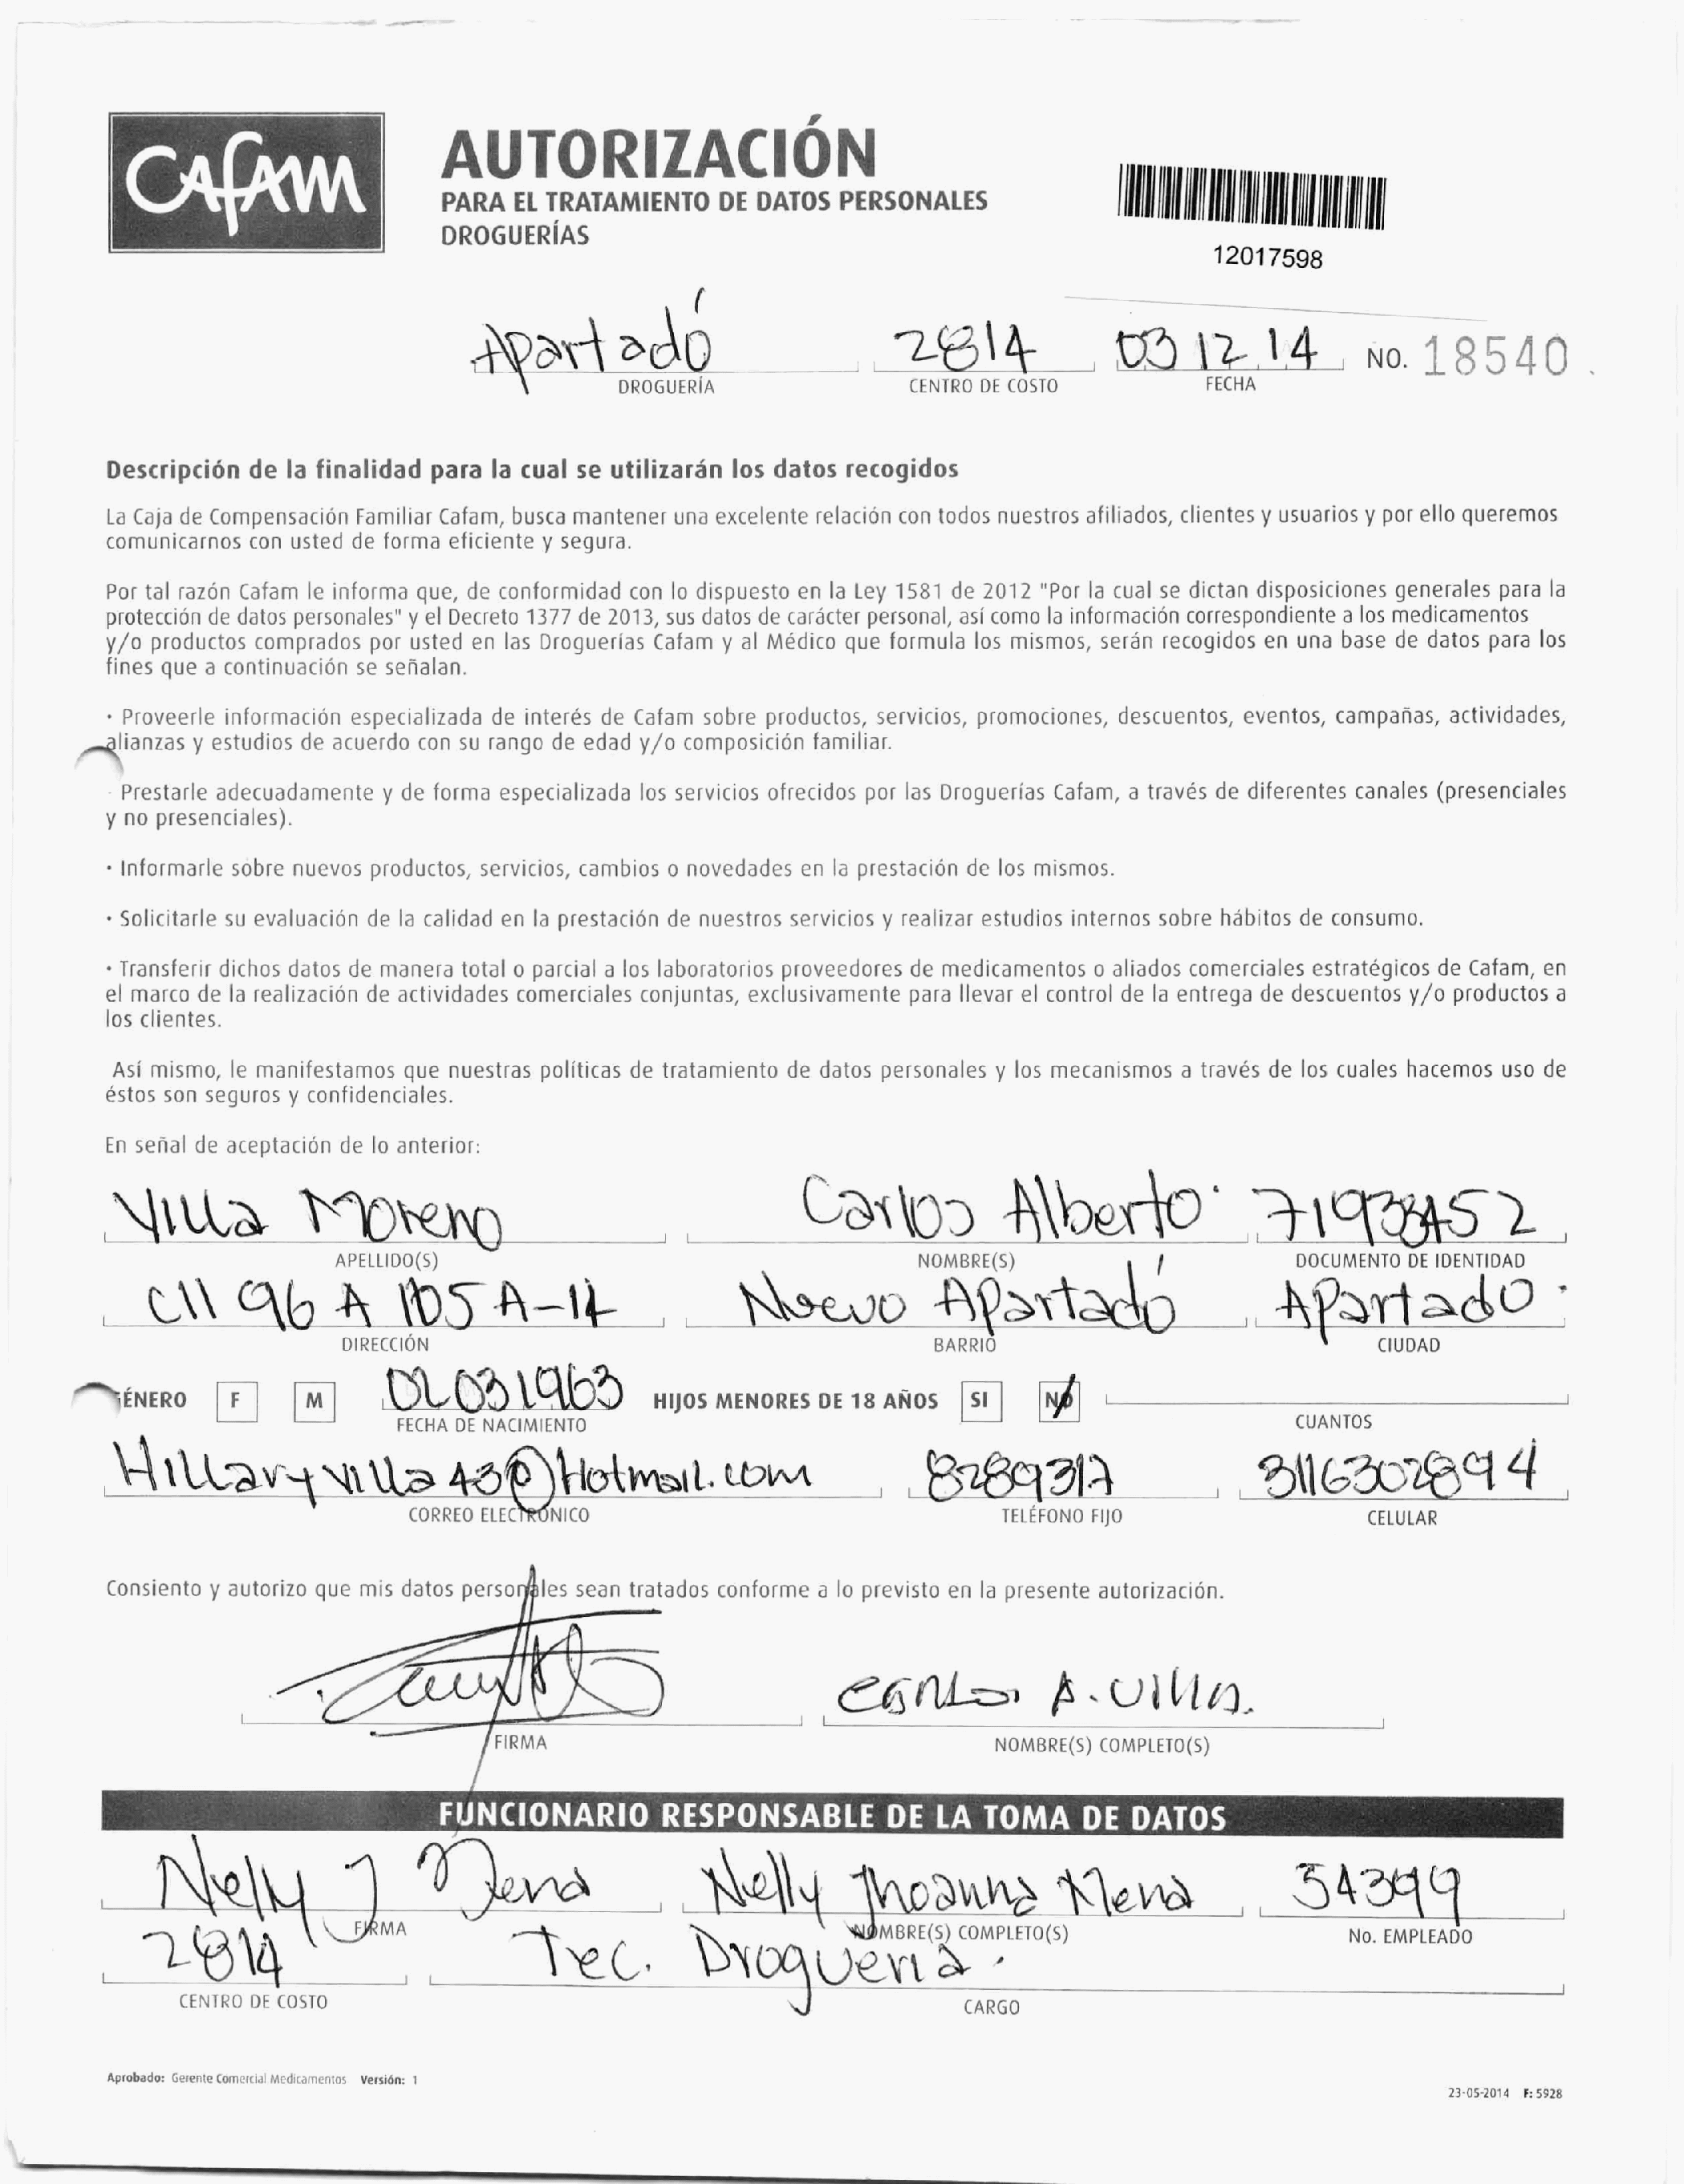 CAFAM
AUTORIZACIÓN
PARA EL TRATAMIENTO DE DATOS PERSONALES
DROGUERÍAS
12017598
Apartadó 2814 03 12 14 NO. 18540
DROGUERÍA CENTRO DE COSTO FECHA
Descripción de la finalidad para la cual se utilizarán los datos recogidos
La Caja de Compensación Familiar Cafam, busca mantener una excelente relación con todos nuestros afiliados, clientes y usuarios y por ello queremos
comunicarnos con usted de forma eficiente y segura.
Por tal razón Cafam le informa que, de conformidad con lo dispuesto en la Ley 1581 de 2012 "Por la cual se dictan disposiciones generales para la
protección de datos personales" y el Decreto 1377 de 2013, sus datos de carácter personal, así como la información correspondiente a los medicamentos
y/o productos comprados por usted en las Droguerías Cafam y al Médico que formula los mismos, serán recogidos en una base de datos para los
fines que a continuación se señalan.
· Proveerle información especializada de interés de Cafam sobre productos, servicios, promociones, descuentos, eventos, campañas, actividades,
alianzas y estudios de acuerdo con su rango de edad y/o composición familiar.
· Prestarle adecuadamente y de forma especializada los servicios ofrecidos por las Droguerías Cafam, a través de diferentes canales (presenciales
y no presenciales).
· Informarle sobre nuevos productos, servicios, cambios o novedades en la prestación de los mismos.
· Solicitarle su evaluación de la calidad en la prestación de nuestros servicios y realizar estudios internos sobre hábitos de consumo.
· Transferir dichos datos de manera total o parcial a los laboratorios proveedores de medicamentos o aliados comerciales estratégicos de Cafam, en
el marco de la realización de actividades comerciales conjuntas, exclusivamente para llevar el control de la entrega de descuentos y/o productos a
los clientes.
Así mismo, le manifestamos que nuestras políticas de tratamiento de datos personales y los mecanismos a través de los cuales hacemos uso de
éstos son seguros y confidenciales.
En señal de aceptación de lo anterior:
Villa Moreno Carlos Alberto
APELLIDO(S) NOMBRE(S) DOCUMENTO DE IDENTIDAD
Cll 96 A 105 A-14 Nuevo Apartadó Apartado
DIRECCIÓN BARRIO CIUDAD
GÉNERO F M 02031963 HIJOS MENORES DE 18 AÑOS SI NO
FECHA DE NACIMIENTO CUANTOS
Hillaryvilla43@Hotmail.com 8289317 3116302894
CORREO ELECTRÓNICO TELÉFONO FIJO CELULAR
Consiento y autorizo que mis datos personales sean tratados conforme a lo previsto en la presente autorización.
Carlos A. Villa.
FIRMA NOMBRE(S) COMPLETO(S)
FUNCIONARIO RESPONSABLE DE LA TOMA DE DATOS
Nelly J Mena Nelly Jhoanna Mena 54399
FIRMA NOMBRE(S) COMPLETO(S) No. EMPLEADO
2814 Tec. Drogueria.
CENTRO DE COSTO CARGO
Aprobado: Gerente Comercial Medicamentos Versión: 1
23-05-2014 F: 5928